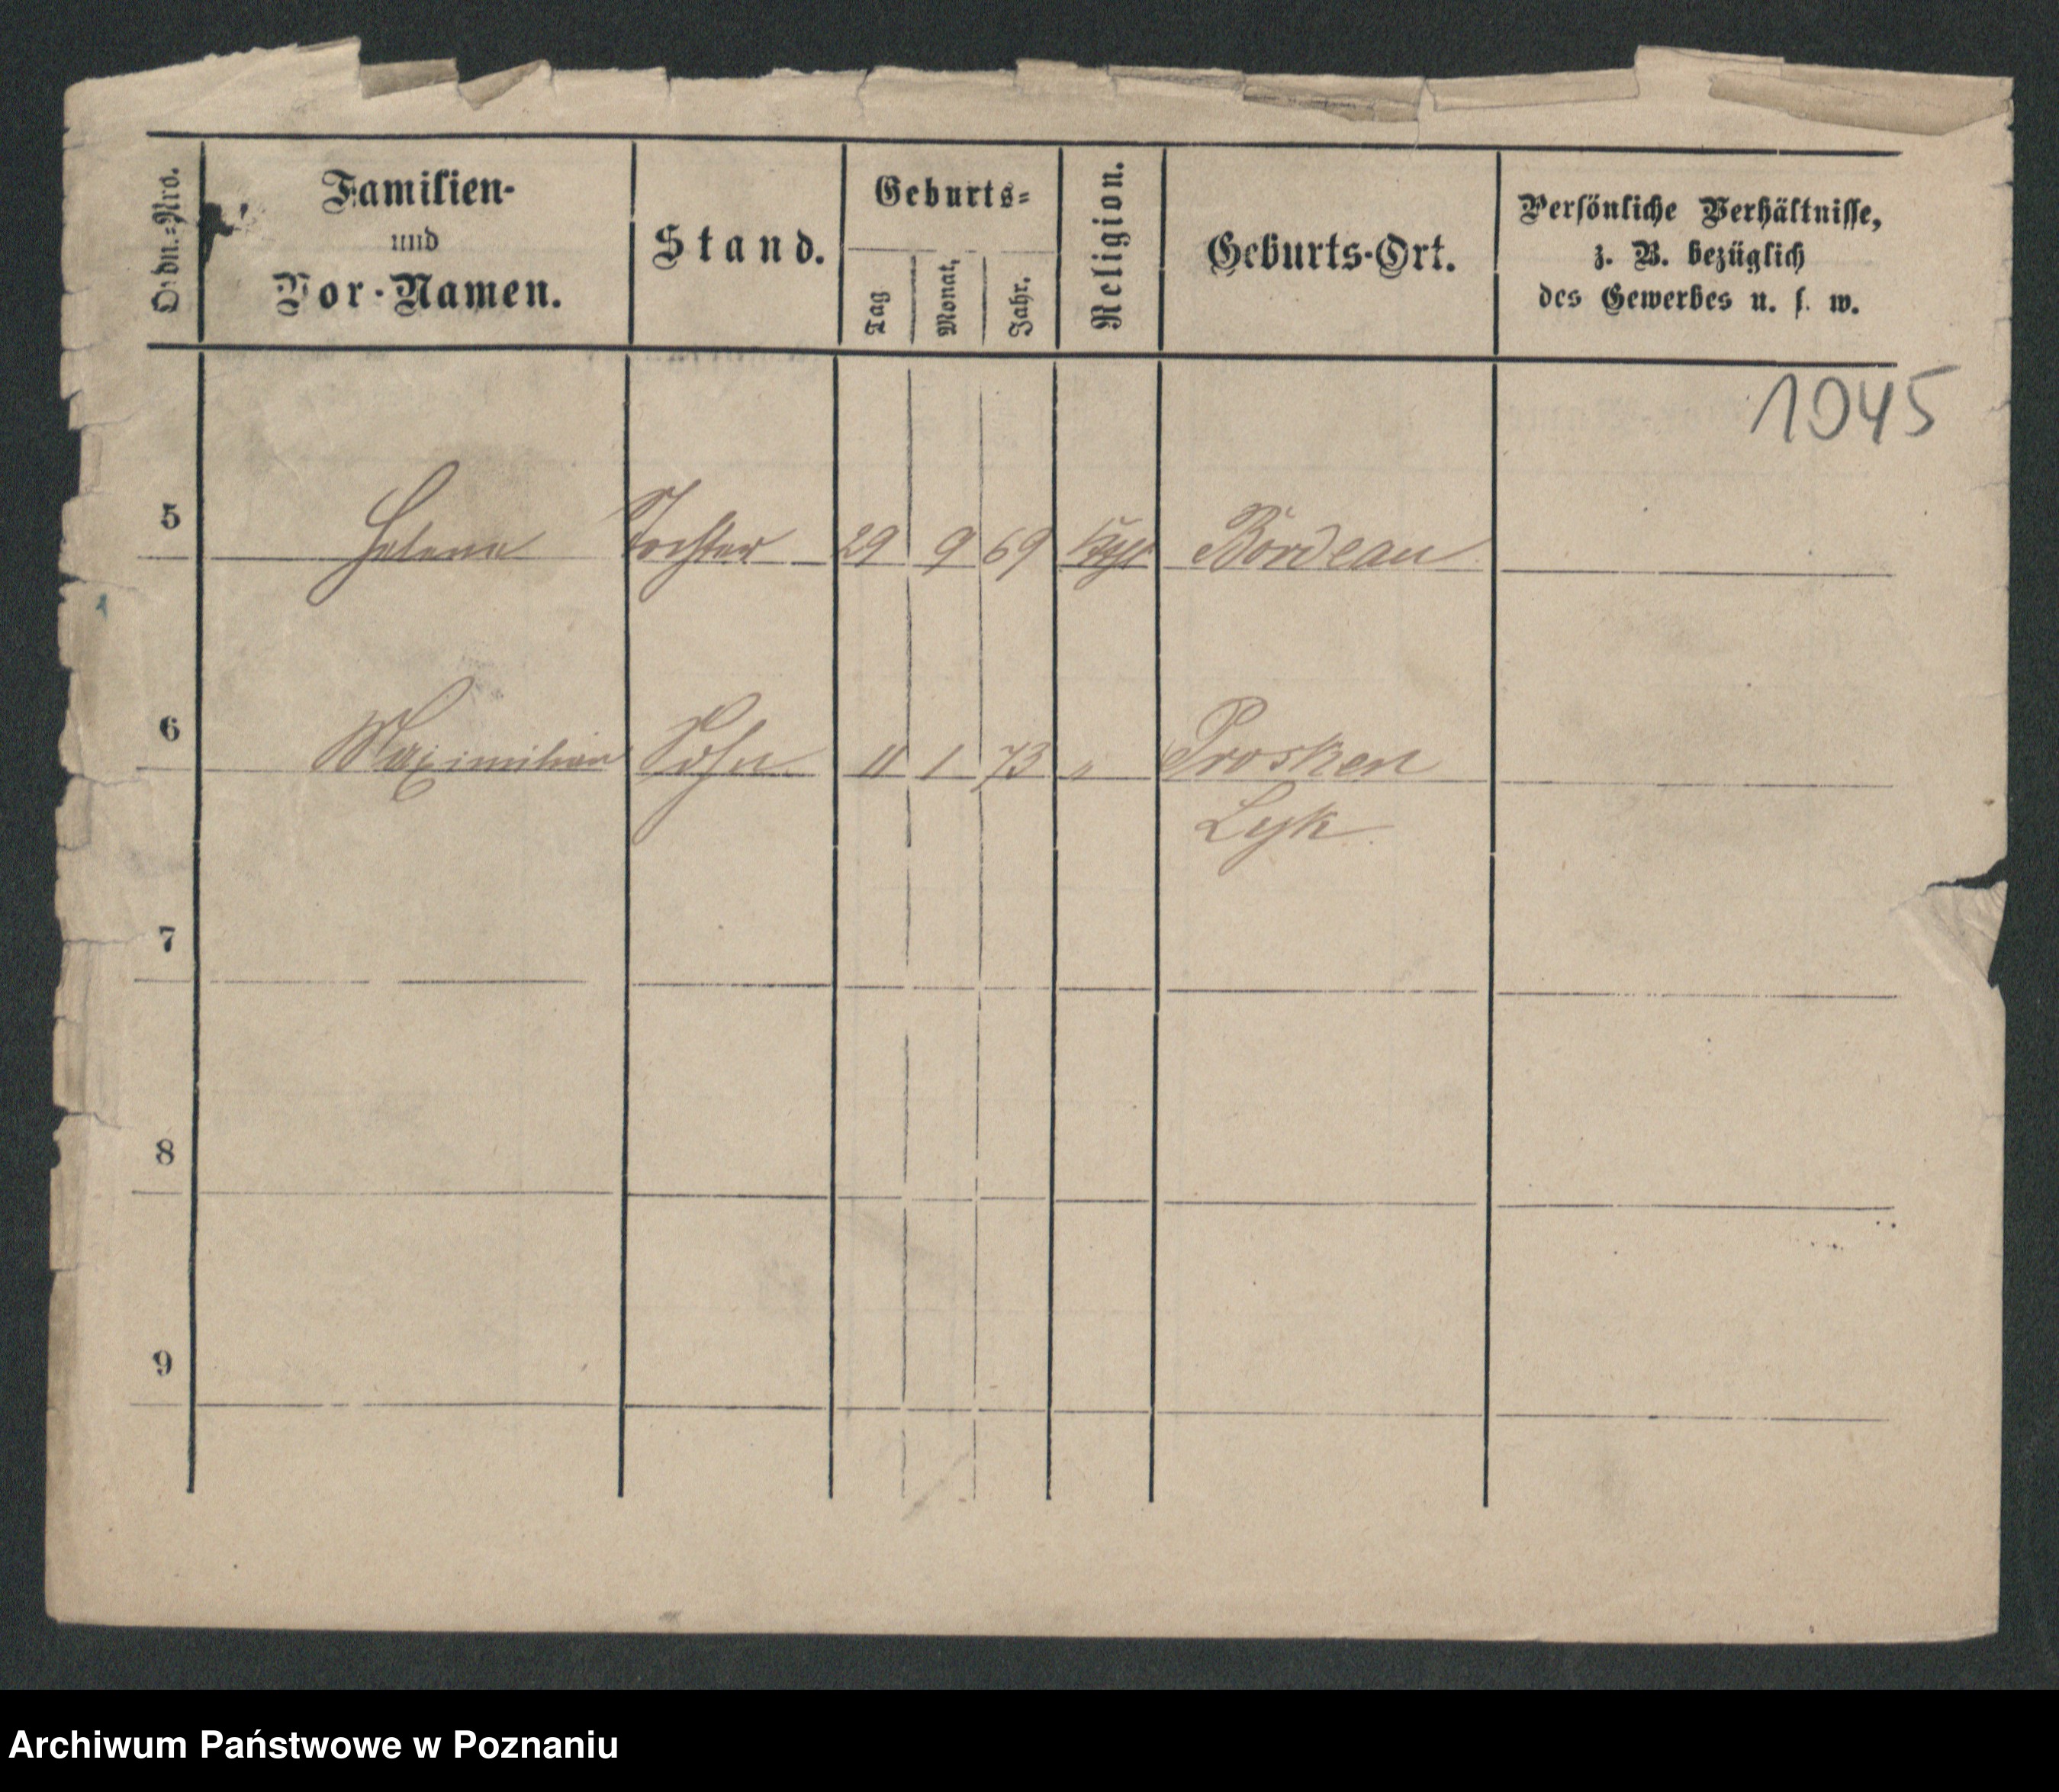 Ordn.-Nro.
Familien-
und
Vor-Namen.
Stand.
Geburts-
Tag
Monat.
Jahr.
Religion.
Geburts-Ort.
Persönliche Verhältnisse,
z. B. bezüglich
des Gewerbes u. s. w.
1045
5 Helene Tochter 29 9 69 Bordeau
6 Maximilian Sohn 11 1 73 " Prosken
Lyk
7
8
9
Archiwum Państwowe w Poznaniu